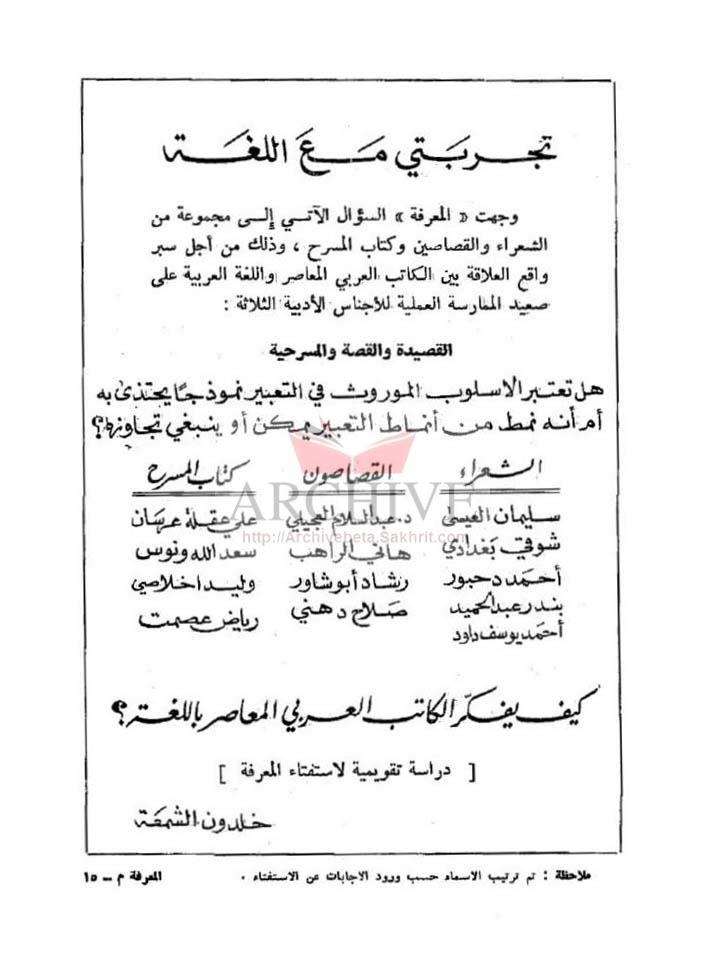 تجربتي مع اللغة
وجهت « المعرفة » السؤال الآتي إلى مجموعة من
الشعراء والقصاصين وكتاب المسرح ، وذلك من أجل سبر
واقع العلاقة بين الكاتب العربي المعاصر واللغة العربية على
صعيد الممارسة العملية للأجناس الأدبية الثلاثة :
القصيدة والقصة والمسرحية
هل تعتبر الاسلوب الموروث في التعبير نموذجًا يحتذى به
أم أنه نمط من أنماط التعبير يمكن أو ينبغي تجاوزها؟
الشعراء القصاصون كتاب المسرح
ARCHIVE
http://Archivebeta.Sakhrit.com
سليمان العيسى د. عبد السلام العجيلي علي عقلة عرسان
شوقي بغدادي هاني الراهب سعد الله ونوس
أحمد دحبور رشاد أبو شاور وليد اخلاصي
بندر عبد الحميد صلاح دهني رياض عصمت
أحمد يوسف داود
كيف يفكّر الكاتب العربي المعاصر باللغة؟
[ دراسة تقويمية لاستفتاء المعرفة ]
خلدون الشمعة
ملاحظة : تم ترتيب الاسماء حسب ورود الاجابات عن الاستفتاء . المعرفة م – ١٥